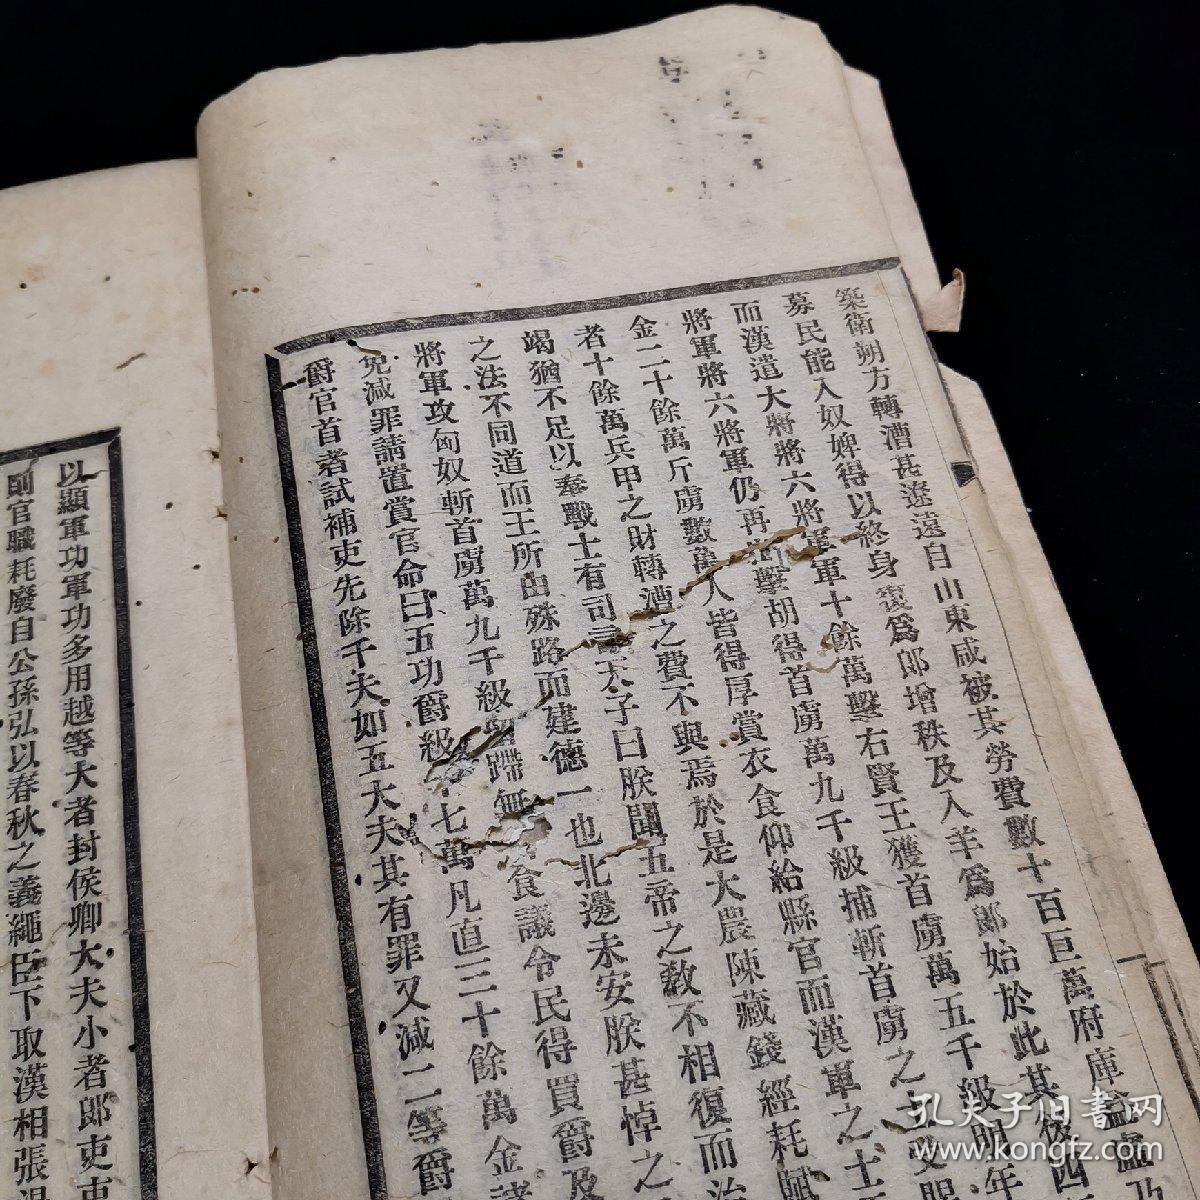 築衛朔方轉漕甚遼遠自山東咸被其勞費數十百巨萬府庫益虛乃
募民能入奴婢得以終身復爲郎增秩及入羊爲郎始於此其後四
而漢遣大將將六將軍軍十餘萬擊右賢王獲首虜萬五千級明年
將軍將六將軍仍再出擊胡得首虜萬九千級捕斬首虜之士受賜
金二十餘萬斤虜數萬人皆得厚賞衣食仰給縣官而漢軍之士
者十餘萬兵甲之財轉漕之費不與焉於是大農陳藏錢經耗賦
竭猶不足以奉戰士有司言天子曰朕聞五帝之教不相復而治
之法不同道而王所由殊路而建德一也北邊未安朕甚悼之
將軍攻匈奴斬首虜萬九千級留蹛無所食議令民得買爵及
免減罪請置賞官命曰武功爵級十七萬凡直三十餘萬金諸
爵官首者試補吏先除千夫如五大夫其有罪又減二等爵
以顯軍功軍功多用越等大者封侯卿大夫小者郎吏吏
則官職耗廢自公孫弘以春秋之義繩臣下取漢相張湯
孔夫子旧書网
www.kongfz.com